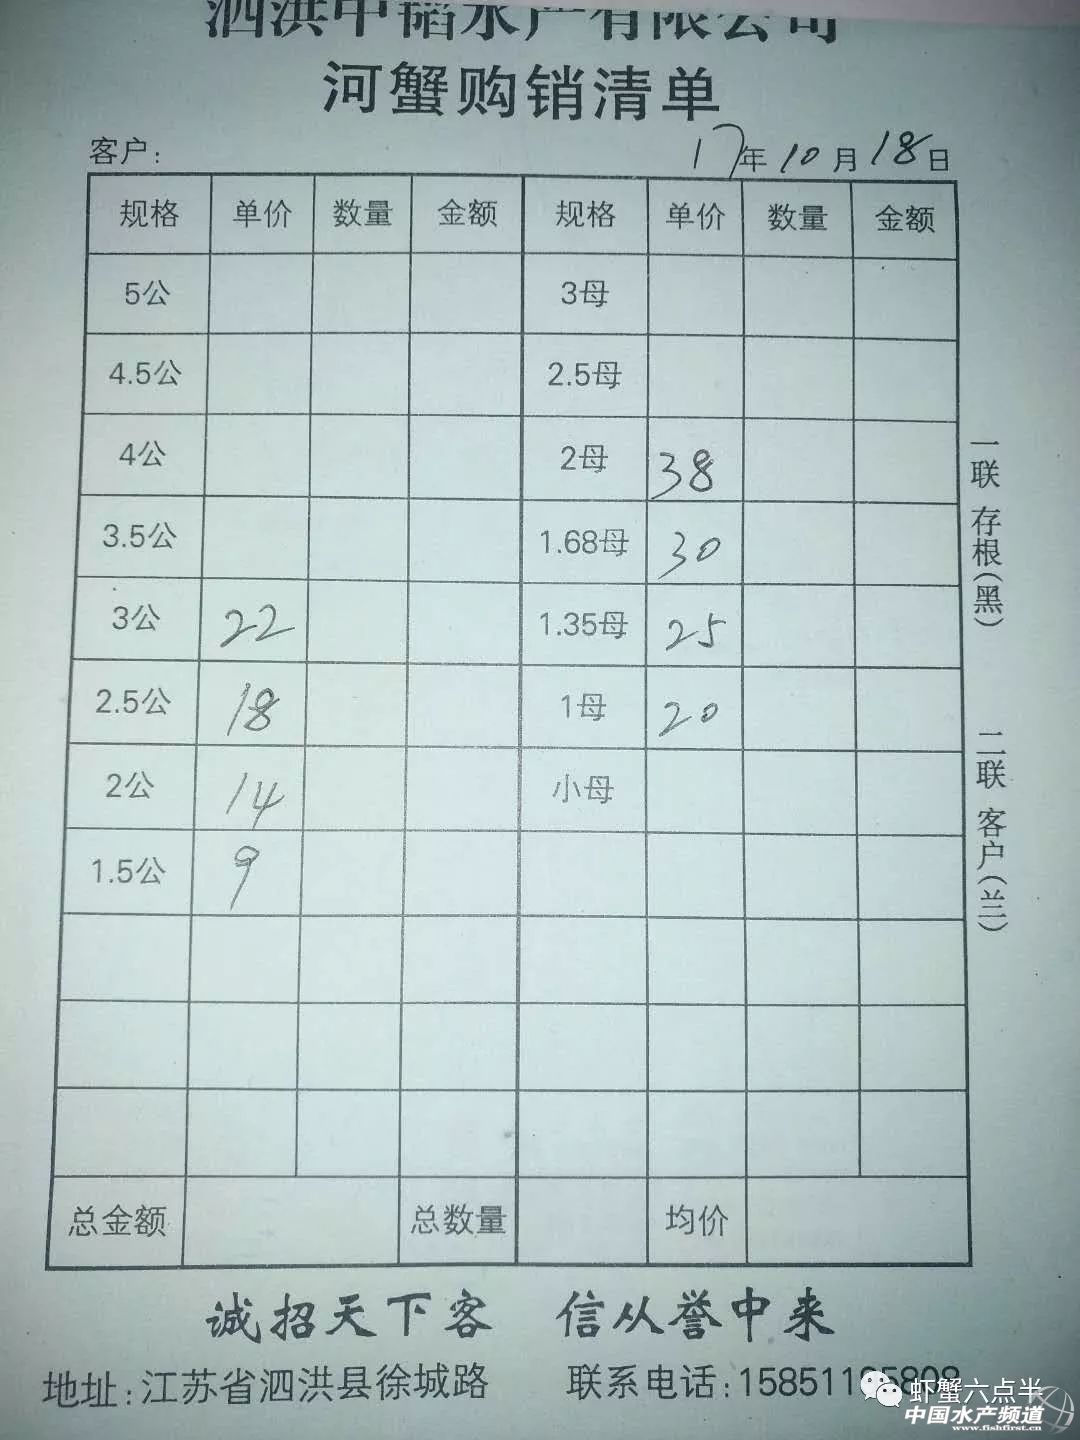 泗洪中韬水产有限公司
河蟹购销清单
客户: 17年10月18日
规格 单价 数量 金额 规格 单价 数量 金额
5公 3母
4.5公 2.5母
4公 2母 38
3.5公 1.68母 30
3公 22 1.35母 25
2.5公 18 1母 20
2公 14 小母
1.5公 9
总金额 总数量 均价
一联 存根(黑) 二联 客户(兰)
诚招天下客 信从誉中来
地址:江苏省泗洪县徐城路 联系电话:
虾蟹六点半
中国水产频道
www.fishfirst.cn